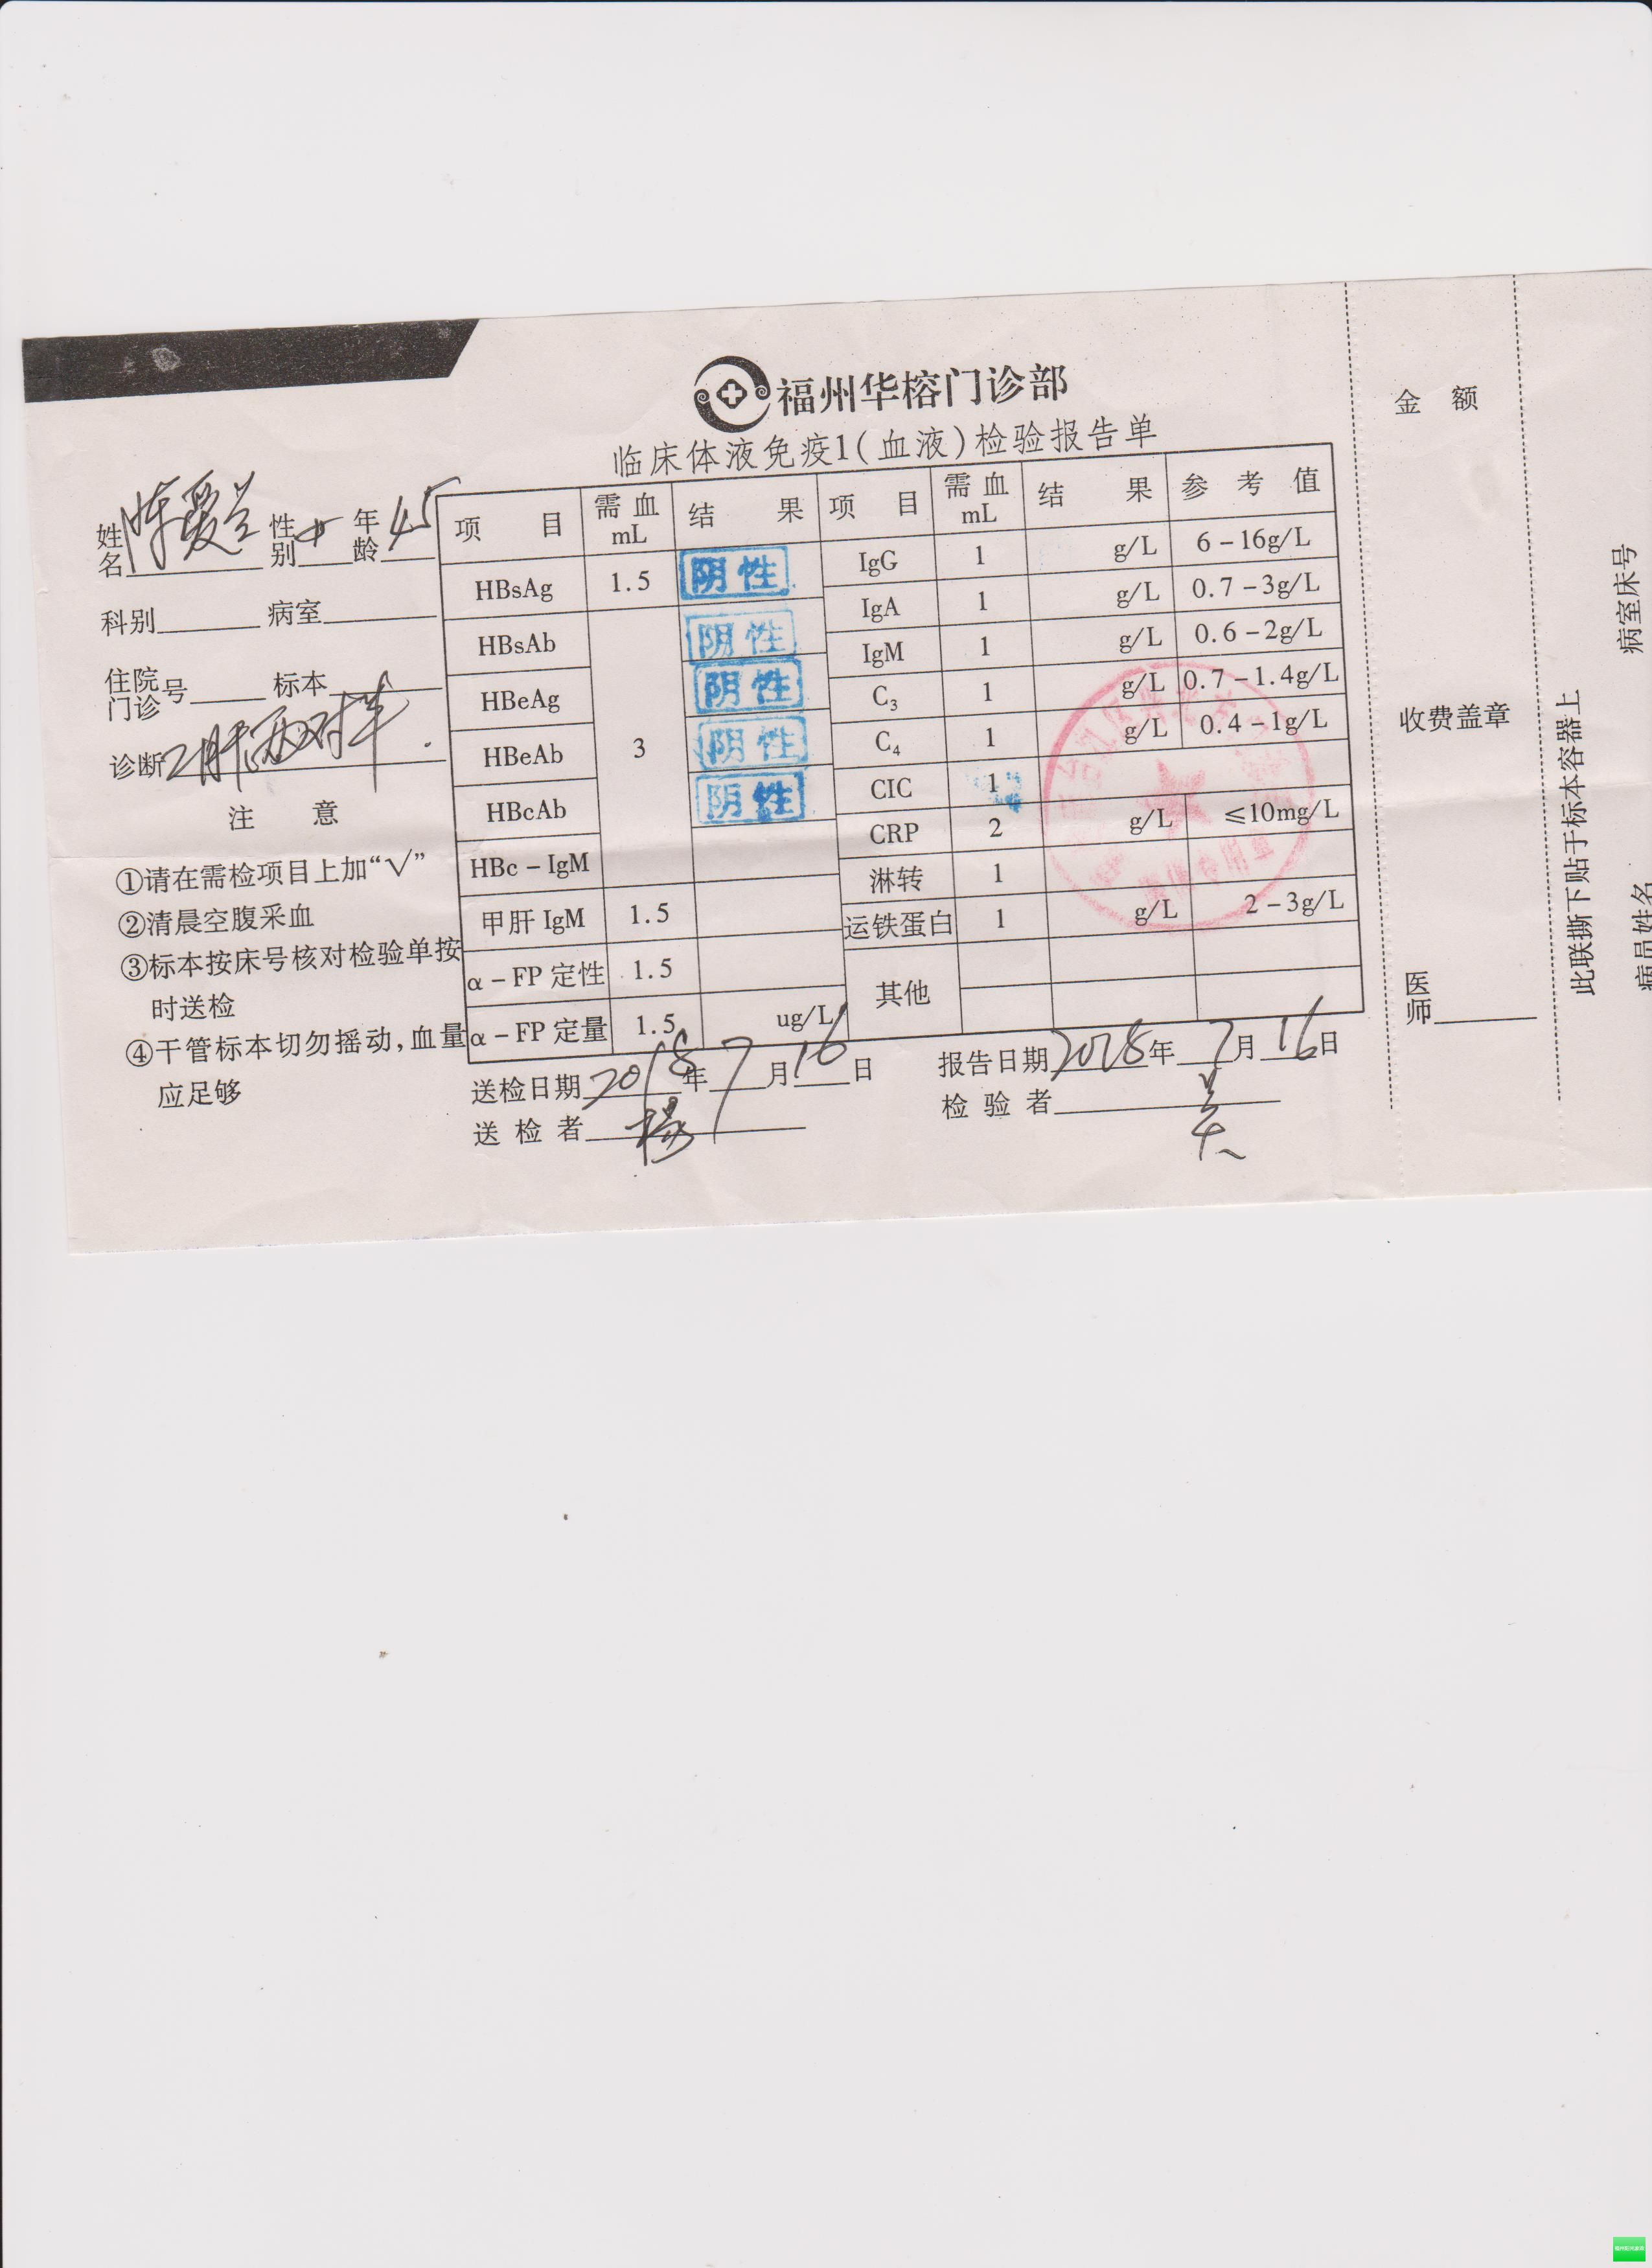 福州华榕门诊部
临床体液免疫1(血液)检验报告单
姓名 陈爱兰 性别 女 年龄 45
科别 病室
住院门诊号 标本
诊断 乙肝两对半.
注 意
①请在需检项目上加“√”
②清晨空腹采血
③标本按床号核对检验单按
时送检
④干管标本切勿摇动,血量
应足够
项目 需血mL 结果 项目 需血mL 结果 参考值
HBsAg 1.5 阴性 IgG 1 g/L 6-16g/L
IgA 1 g/L 0.7-3g/L
HBsAb 3 阴性 IgM 1 g/L 0.6-2g/L
HBeAg 阴性 C3 1 g/L 0.7-1.4g/L
HBeAb 阴性 C4 1 g/L 0.4-1g/L
HBcAb 阴性 CIC 1
HBc-IgM CRP 2 g/L ≤10mg/L
淋转 1
甲肝IgM 1.5 运铁蛋白 1 g/L 2-3g/L
α-FP定性 1.5 其他
α-FP定量 1.5 ug/L
送检日期 2018年7月16日 报告日期 2018年7月16日
送检者 杨 检验者
金 额
收费盖章
医师
此联撕下贴于标本容器上
病室床号
病员姓名